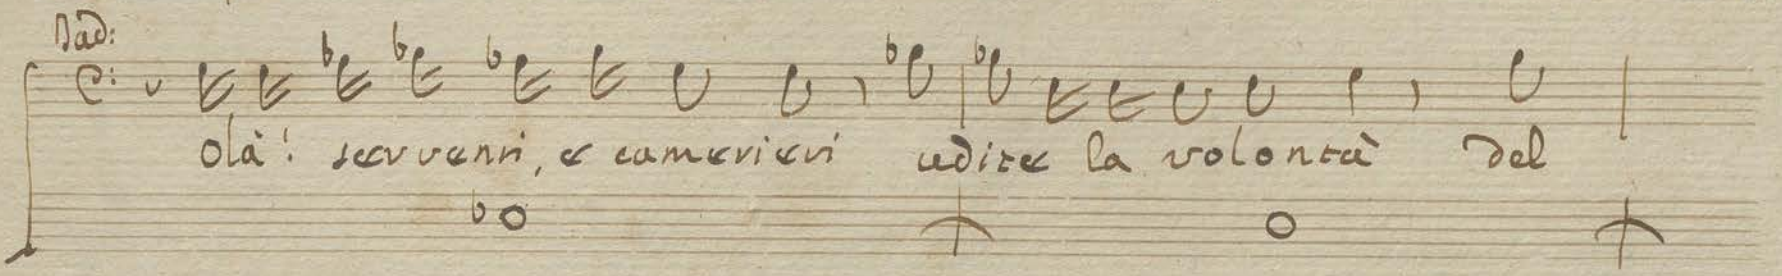 Dad:
Olà! servenri, e camerieri udite la volontà del